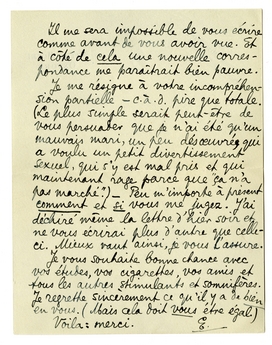 Il me sera impossible de vous écrire
comme avant de vous avoir vue. Et
à côté de cela une nouvelle corres-
pondance me paraîtrait bien pauvre.
Je me résigne à votre incompréhen-
sion partielle – c.à.d. pire que totale.
(Le plus simple serait peut-être de
vous persuader que je n'ai été qu'un
mauvais mari, un peu désœuvré, qui
a voulu un petit divertissement
sexuel, qui s'y est mal pris et qui
maintenant rage parce que ça n'a
pas marché?) – Peu m'importe à présent
comment et si vous me jugez. J'ai
déchiré même la lettre d'hier soir et
ne vous écrirai plus d'autre que celle-
ci. Mieux vaut ainsi, je vous l'assure.
Je vous souhaite bonne chance avec
vos études, vos cigarettes, vos amis et
tous les autres stimulants et somnifères.
Je regrette sincèrement ce qu'il y a de bien
en vous. (Mais cela doit vous être égal)
Voilà: merci. E.